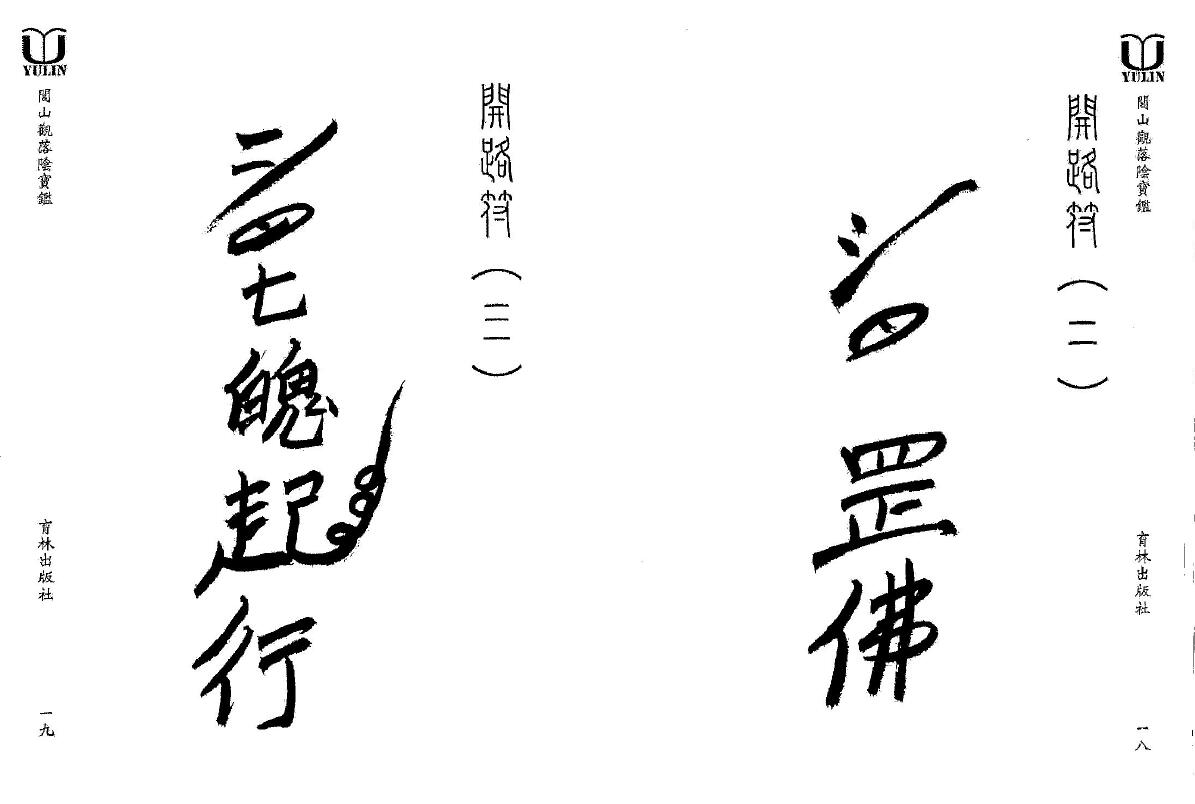 YULIN
閭山觀落陰寶鑑
育林出版社
一八
開路符(二)
罡佛
開路符(三)
七魄起行
YULIN
閭山觀落陰寶鑑
育林出版社
一九